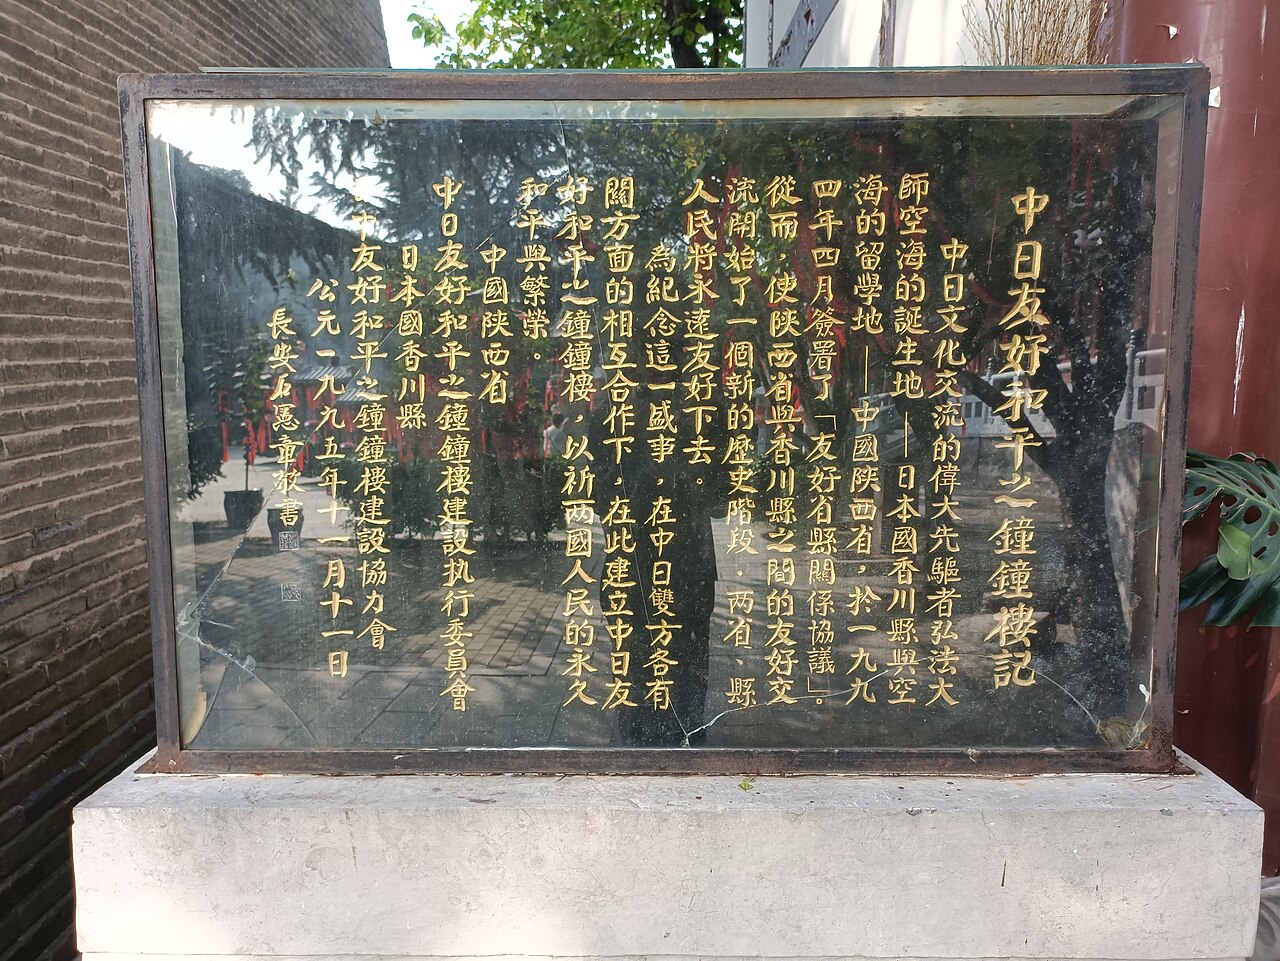 中日友好和平之鐘鐘樓記
中日文化交流的偉大先驅者弘法大
師空海的誕生地——日本國香川縣與空
海的留學地——中國陝西省，於一九九
四年四月簽署了「友好省縣關係協議」。
從而，使陝西省與香川縣之間的友好交
流開始了一個新的歷史階段，两省、縣
人民將永遠友好下去。
為紀念這一盛事，在中日雙方各有
關方面的相互合作下，在此建立中日友
好和平之鐘鐘樓，以祈两國人民的永久
和平與繁榮。
中國陝西省
中日友好和平之鐘鐘樓建設执行委員會
日本國香川縣
中友好和平之鐘鐘樓建設協力會
公元一九九五年十一月十一日
長安石憲章敬書